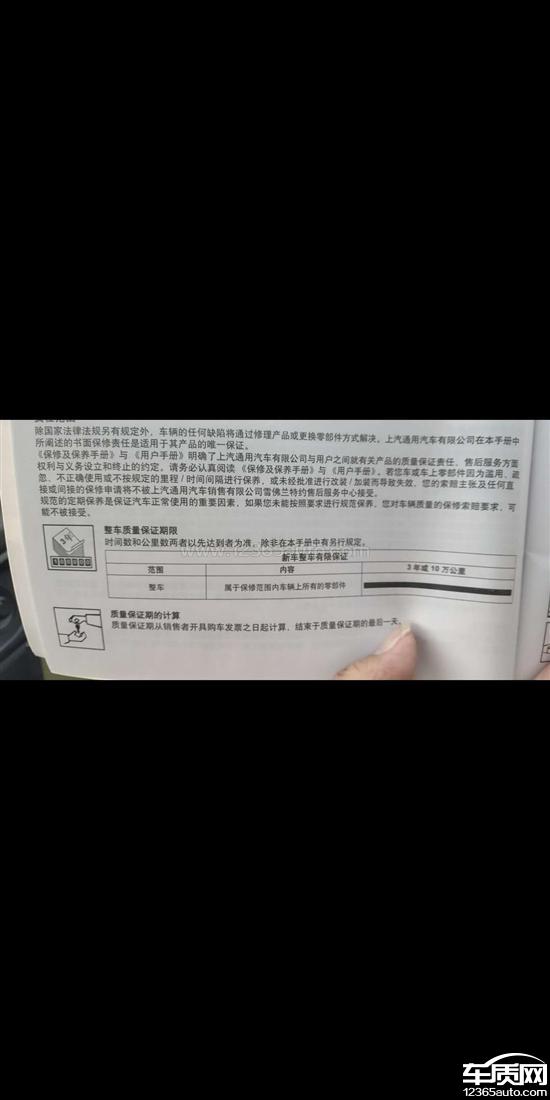 责任范围
除国家法律法规另有规定外，车辆的任何缺陷将通过修理产品或更换零部件方式解决。上汽通用汽车有限公司在本手册中
所阐述的书面保修责任是适用于其产品的唯一保证。
《保修及保养手册》与《用户手册》明确了上汽通用汽车有限公司与用户之间就有关产品的质量保证责任、售后服务方面
权利与义务设立和终止的约定。请务必认真阅读《保修及保养手册》与《用户手册》。若您车或车上零部件因为滥用、疏
忽、不正确使用或不按规定的里程/时间间隔进行保养，或未经批准进行改装/加装而导致失效，您的索赔主张及任何直
接或间接的保修申请将不被上汽通用汽车销售有限公司雪佛兰特约售后服务中心接受。
规范的定期保养是保证汽车正常使用的重要因素，如果您未能按照要求进行规范保养，您对车辆质量的保修索赔要求，可
能不被接受。
整车质量保证期限
时间数和公里数两者以先达到者为准，除非在本手册中有另行规定。
www.12365auto.com
新车整车有限保证
范围 内容 3年或10万公里
整车 属于保修范围内车辆上所有的零部件
3年
100000
质量保证期的计算
质量保证期从销售者开具购车发票之日起计算，结束于质量保证期的最后一天。
车质网
12365auto.com